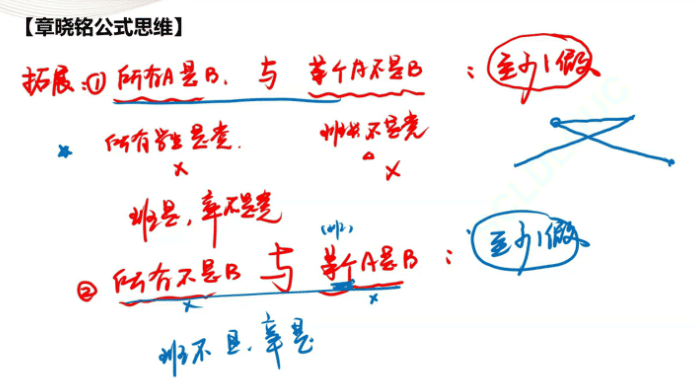 【章晓铭公式思维】
拓展:① 所有A是B. 与 某个A不是B : 至少1假
所有学生是党. 班长不是党
班是,辛不是党
(班)
② 所有不是B 与 某个A是B : 至少1假
班不是.辛是